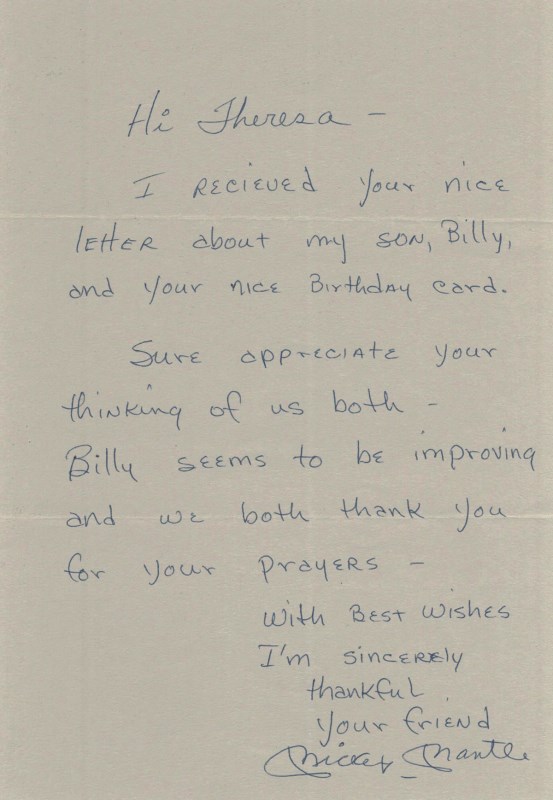 Hi Theresa -
I recieved your nice
letter about my son, Billy,
and your nice Birthday card.
Sure appreciate your
thinking of us both -
Billy seems to be improving
and we both thank you
for your prayers -
With Best Wishes
I'm sincerely
thankful
your friend
Mickey Mantle